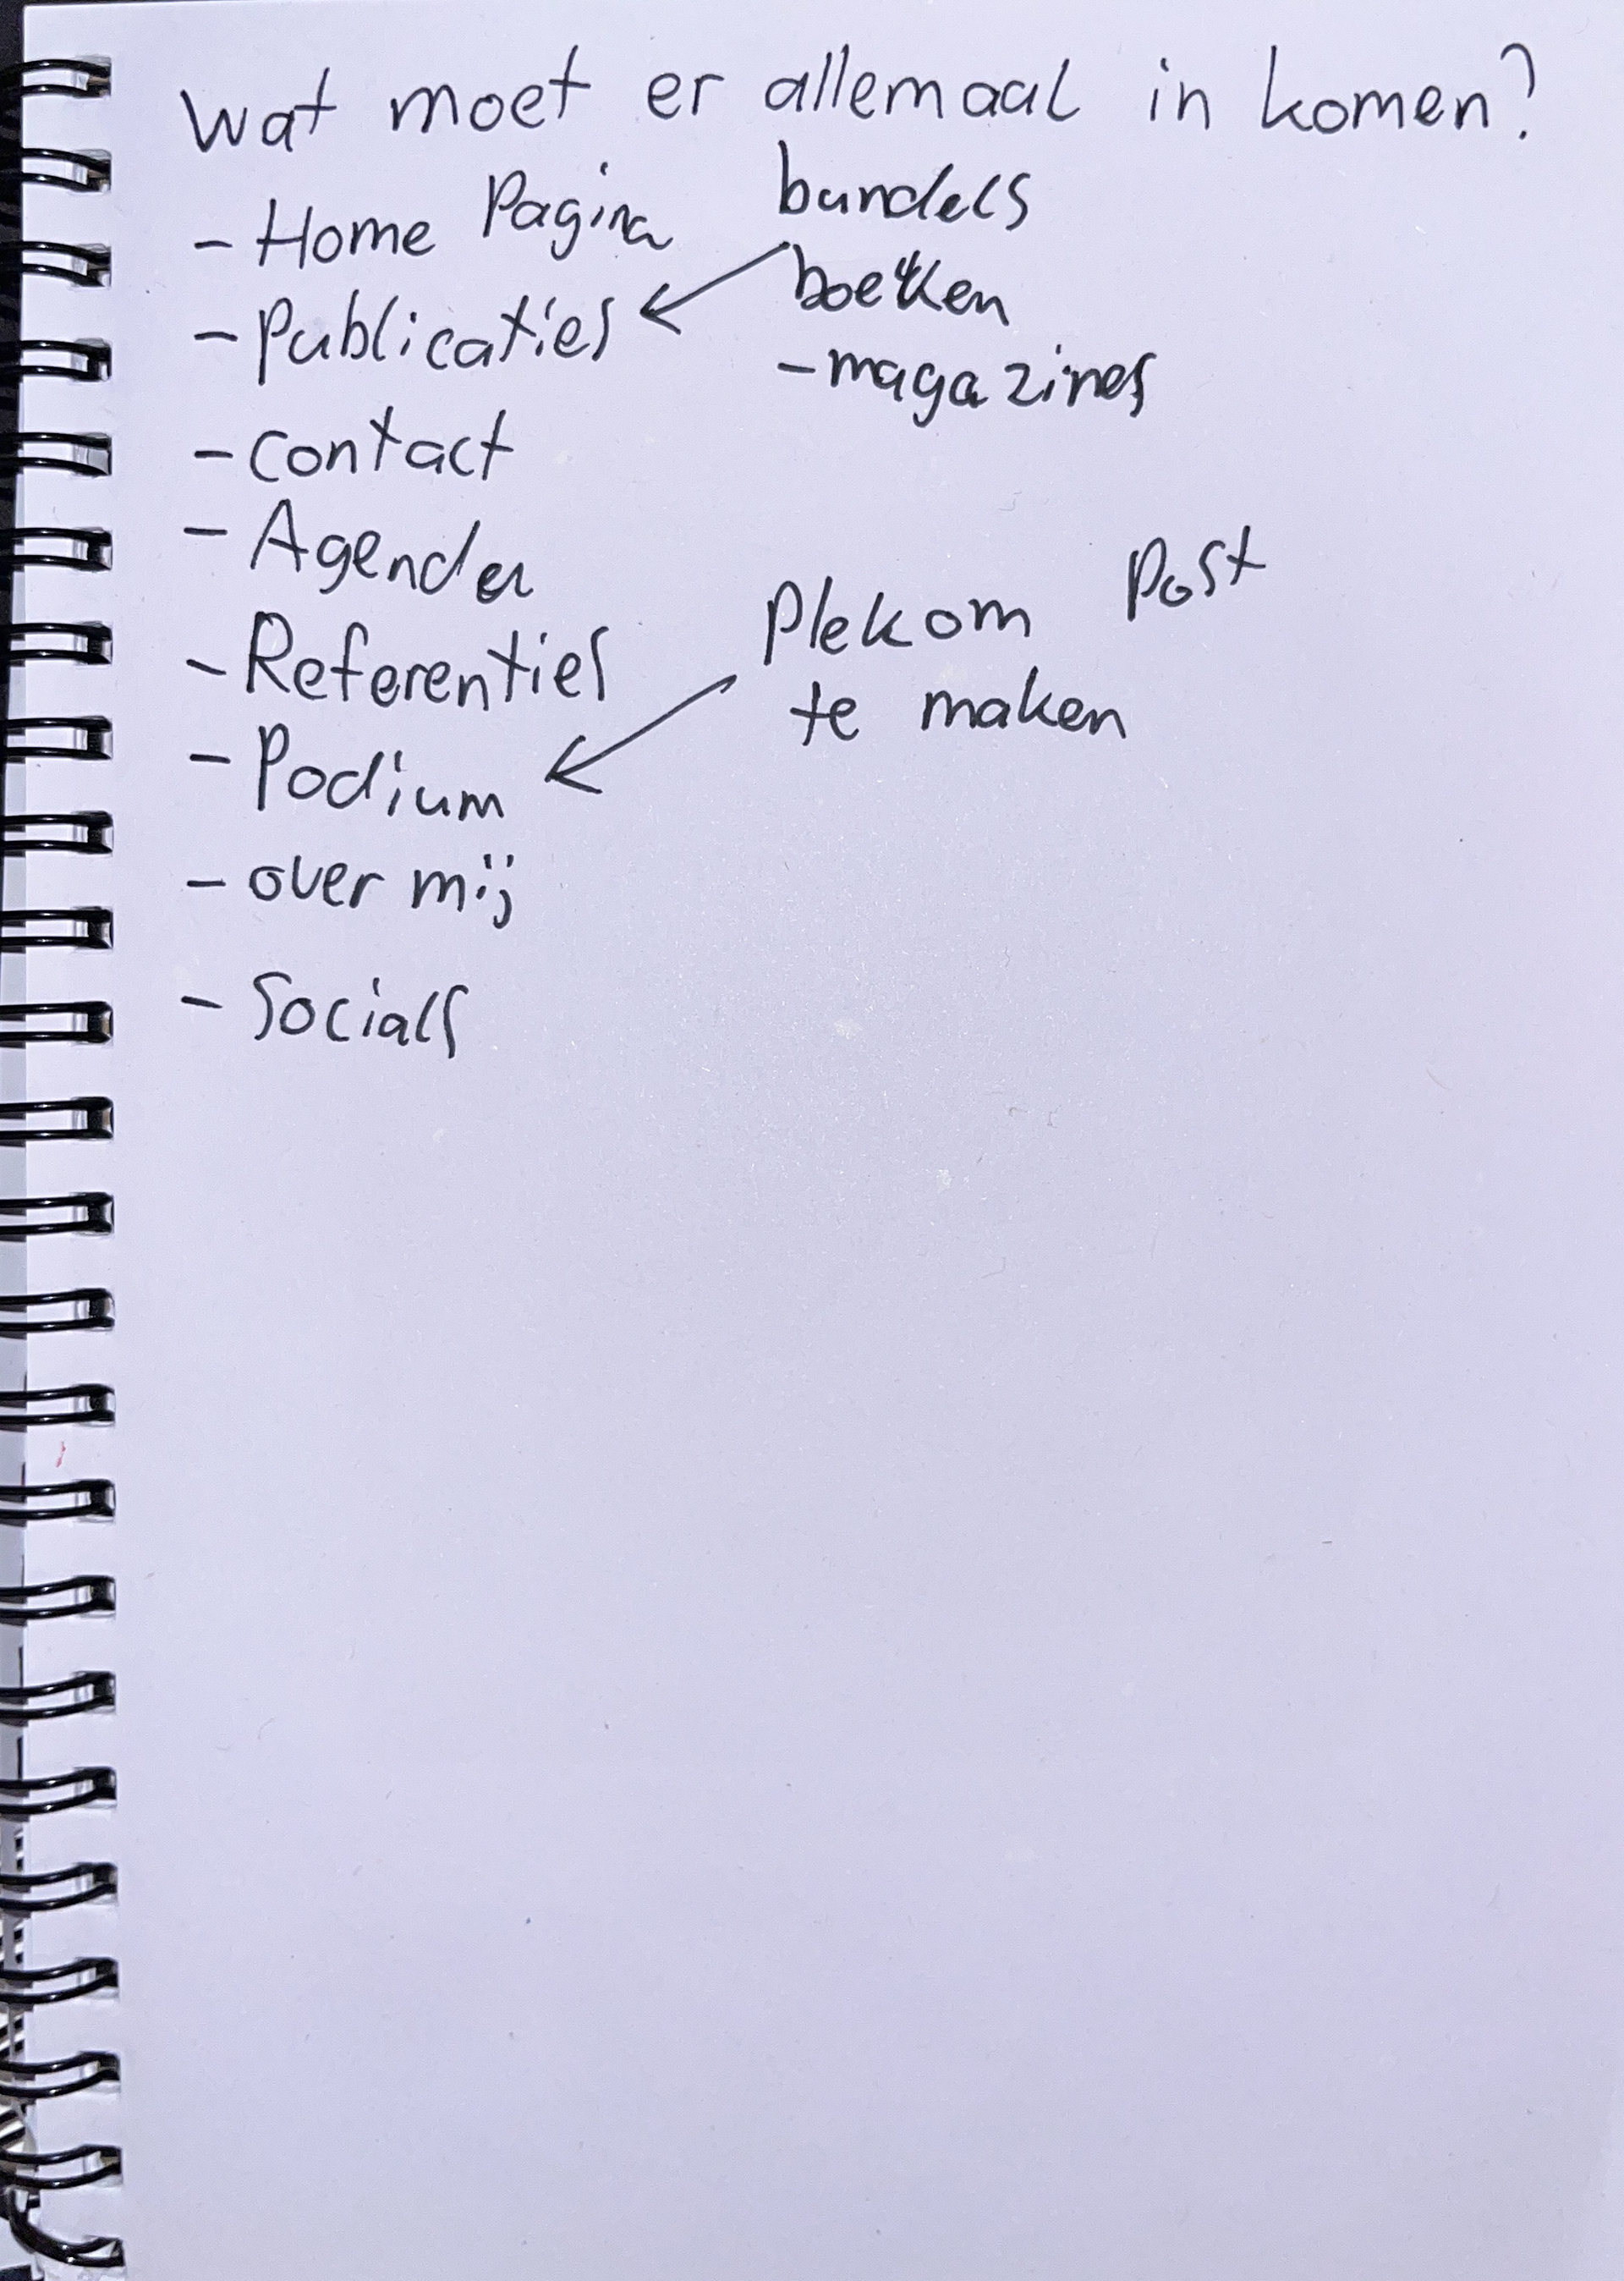 Wat moet er allemaal in komen?
- Home Pagina
- Publicaties
bundels
boeken
- magazines
- contact
- Agenda
- Referenties
- Podium
Plek om post
te maken
- over mij
- Socials